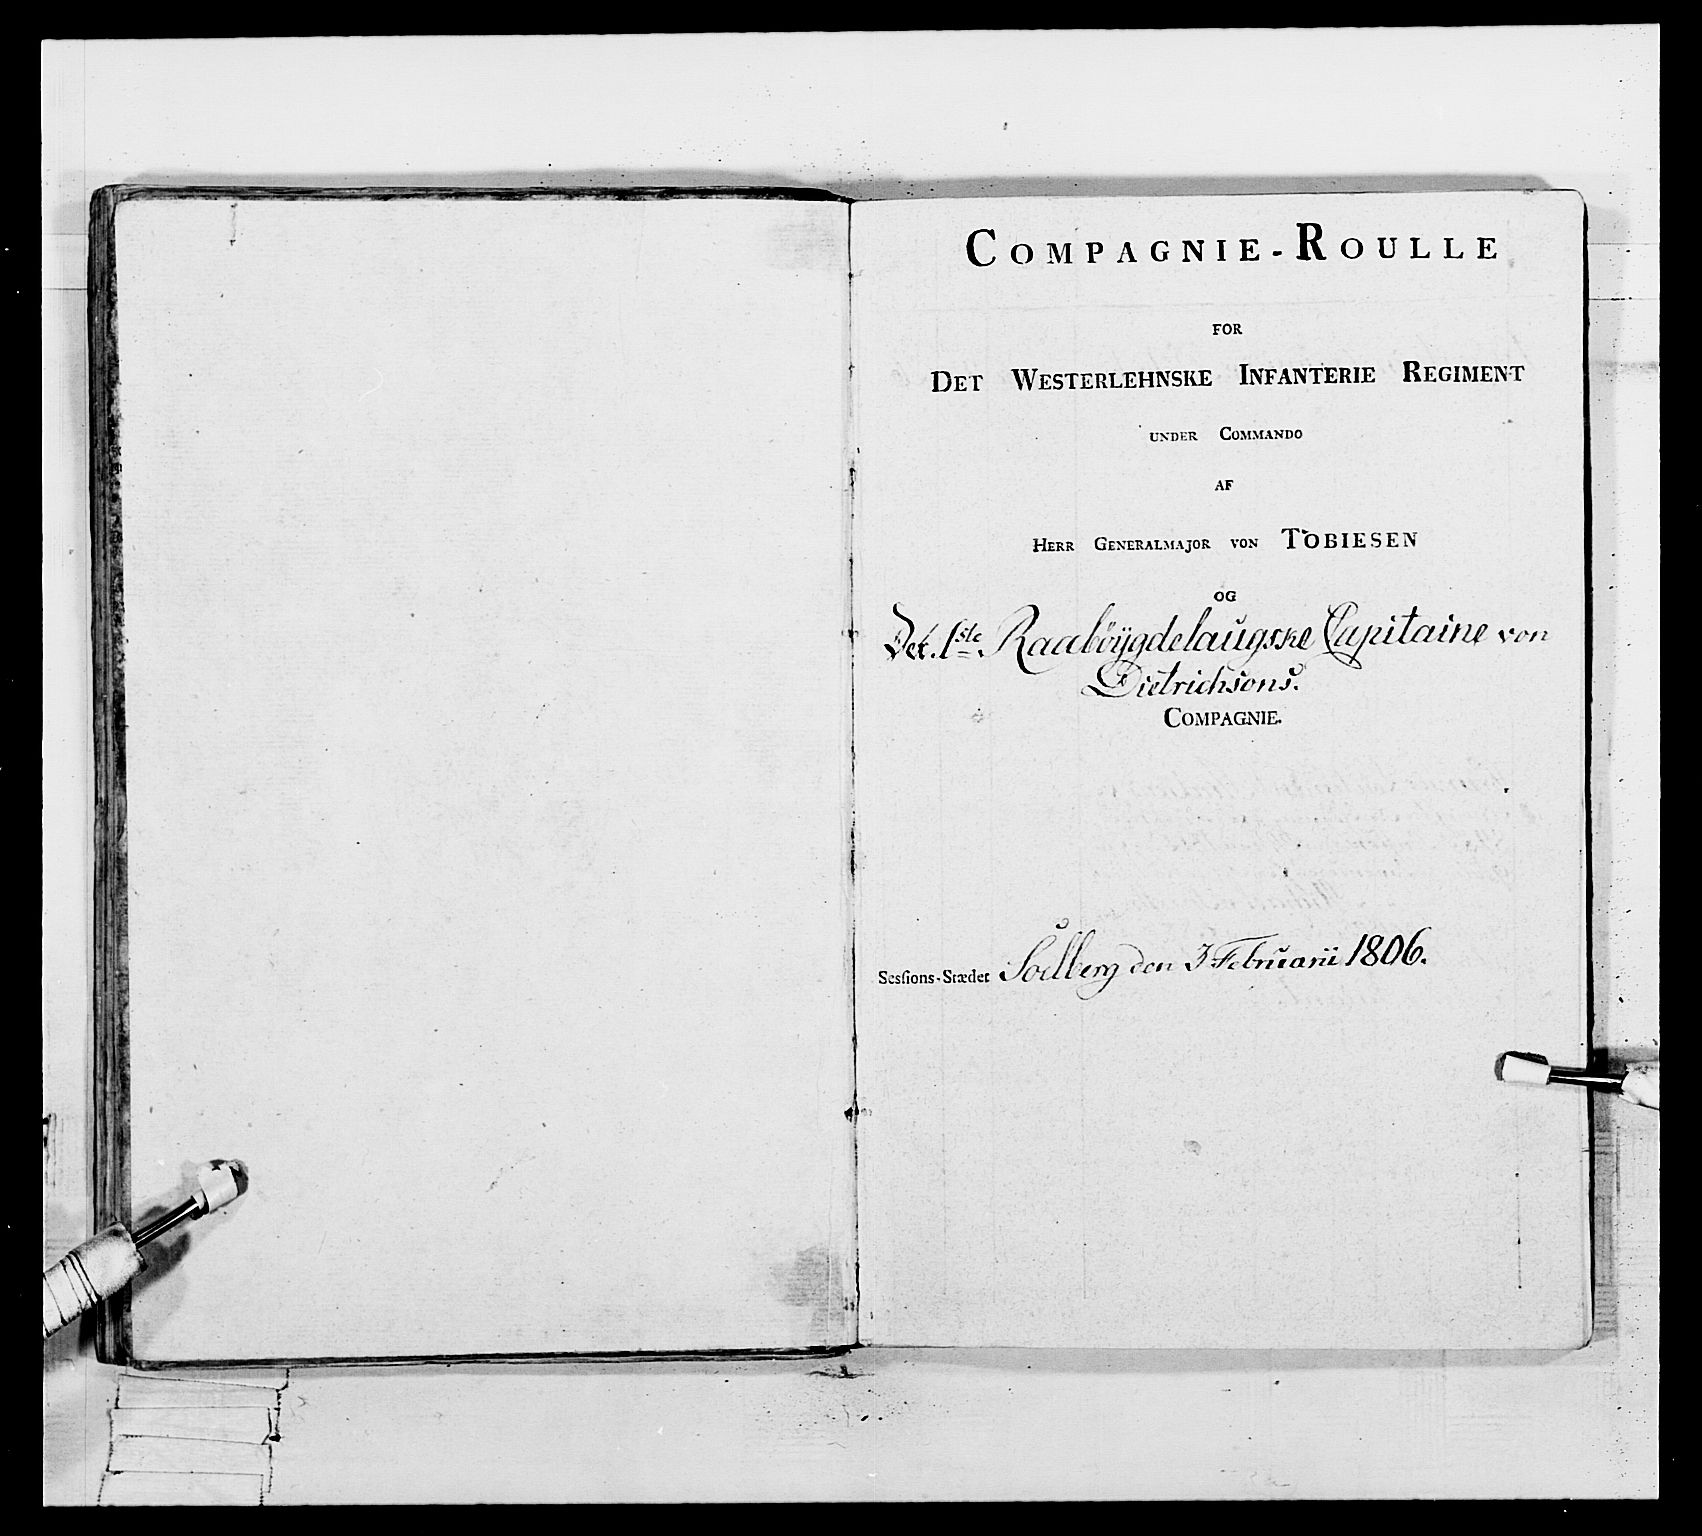 COMPAGNIE-ROULLE
FOR
DET WESTERLEHNSKE INFANTERIE REGIMENT
UNDER COMMANDO
AF
HERR GENERALMAJOR VON TOBIESEN
OG
Det. 1ste Raabӧÿgdelaugske Capitaine von
Dietrichsons.
COMPAGNIE.
Sesſions-Stædet Solberg den 3 Februarii 1806.